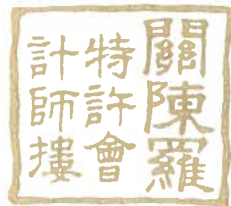 關陳羅
特許會
計師摟